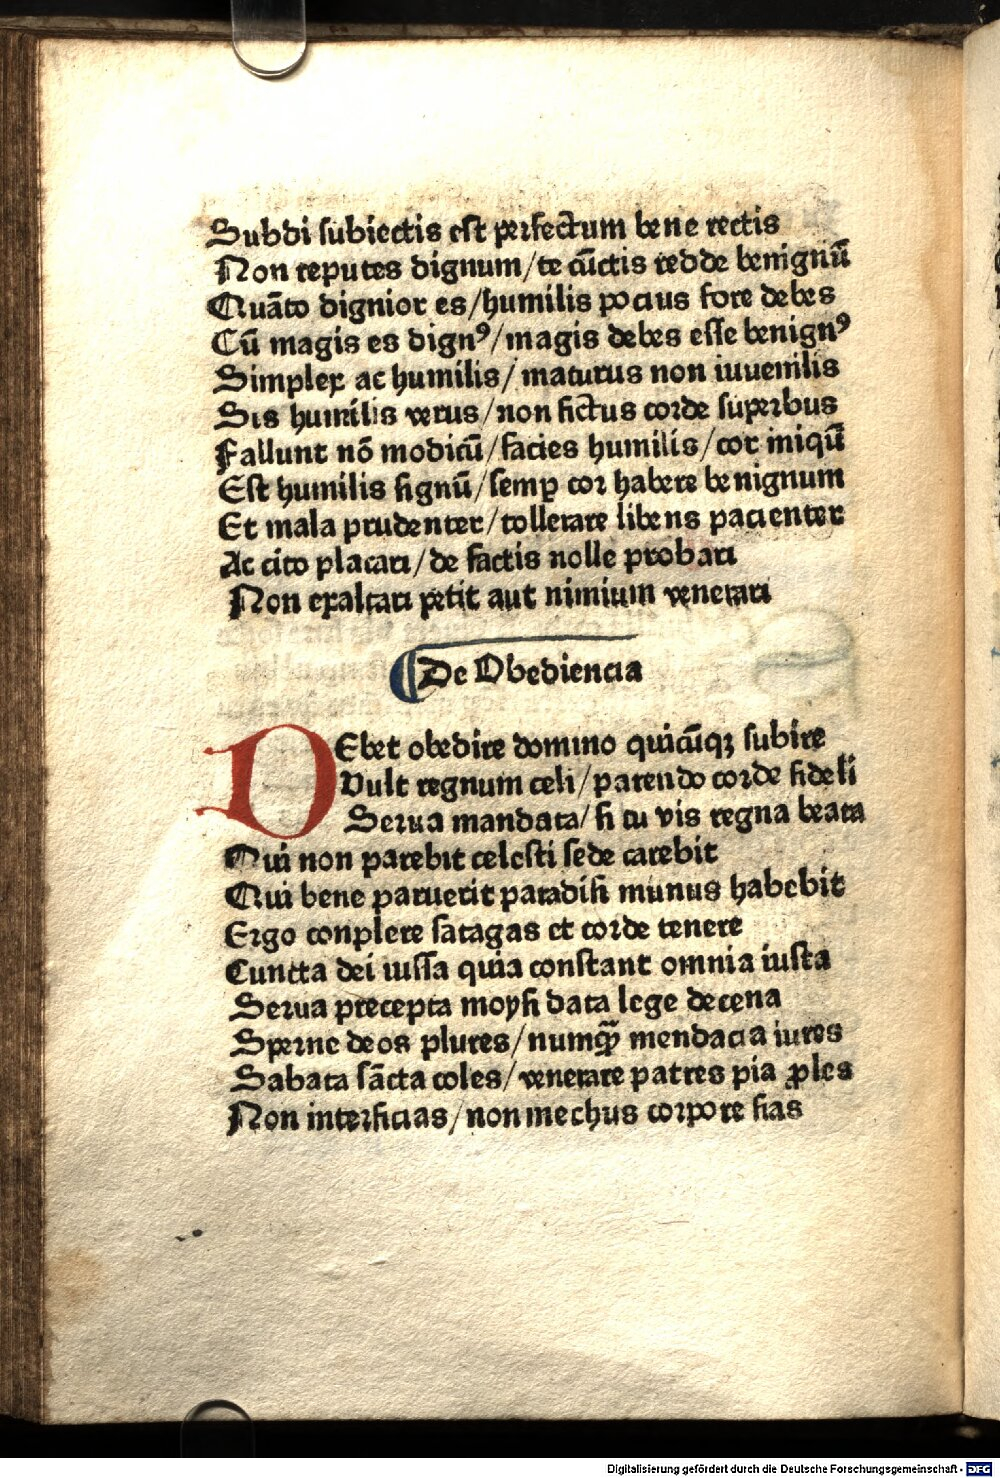 Subdi subiectis est perfectum bene rectis
Non reputes dignum/te cūctis redde benignū
Quāto dignior es/humilis pocius fore debes
Cū magis es dignꝰ/magis debes esse benignꝰ
Simplex ac humilis/maturus non iuuenilis
Sis humilis verus/non fictus corde superbus
Fallunt nō modicū/facies humilis/cor iniqū
Est humilis signū/semꝑ cor habere benignum
Et mala prudenter/tollerare libens pacienter
Ac cito placari/de factis nolle probari
Non exaltari petit aut nimium venerari
De Obediencia
DEbet obedire domino quicūqꝫ subire
Vult regnum celi/parendo corde fideli
Serua mandata/si tu vis regna beata
Qui non parebit celesti sede carebit
Qui bene paruerit paradisi munus habebit
Ergo conplere satagas et corde tenere
Cuncta dei iussa quia constant omnia iusta
Serua precepta moysi data lege decena
Sperne deos plures/numqͣꝫ mendacia iures
Sabata sācta coles/venerare patres pia ꝓles
Non interficias/non mechus corpore fias
Digitalisierung gefördert durch die Deutsche Forschungsgemeinschaft - DFG